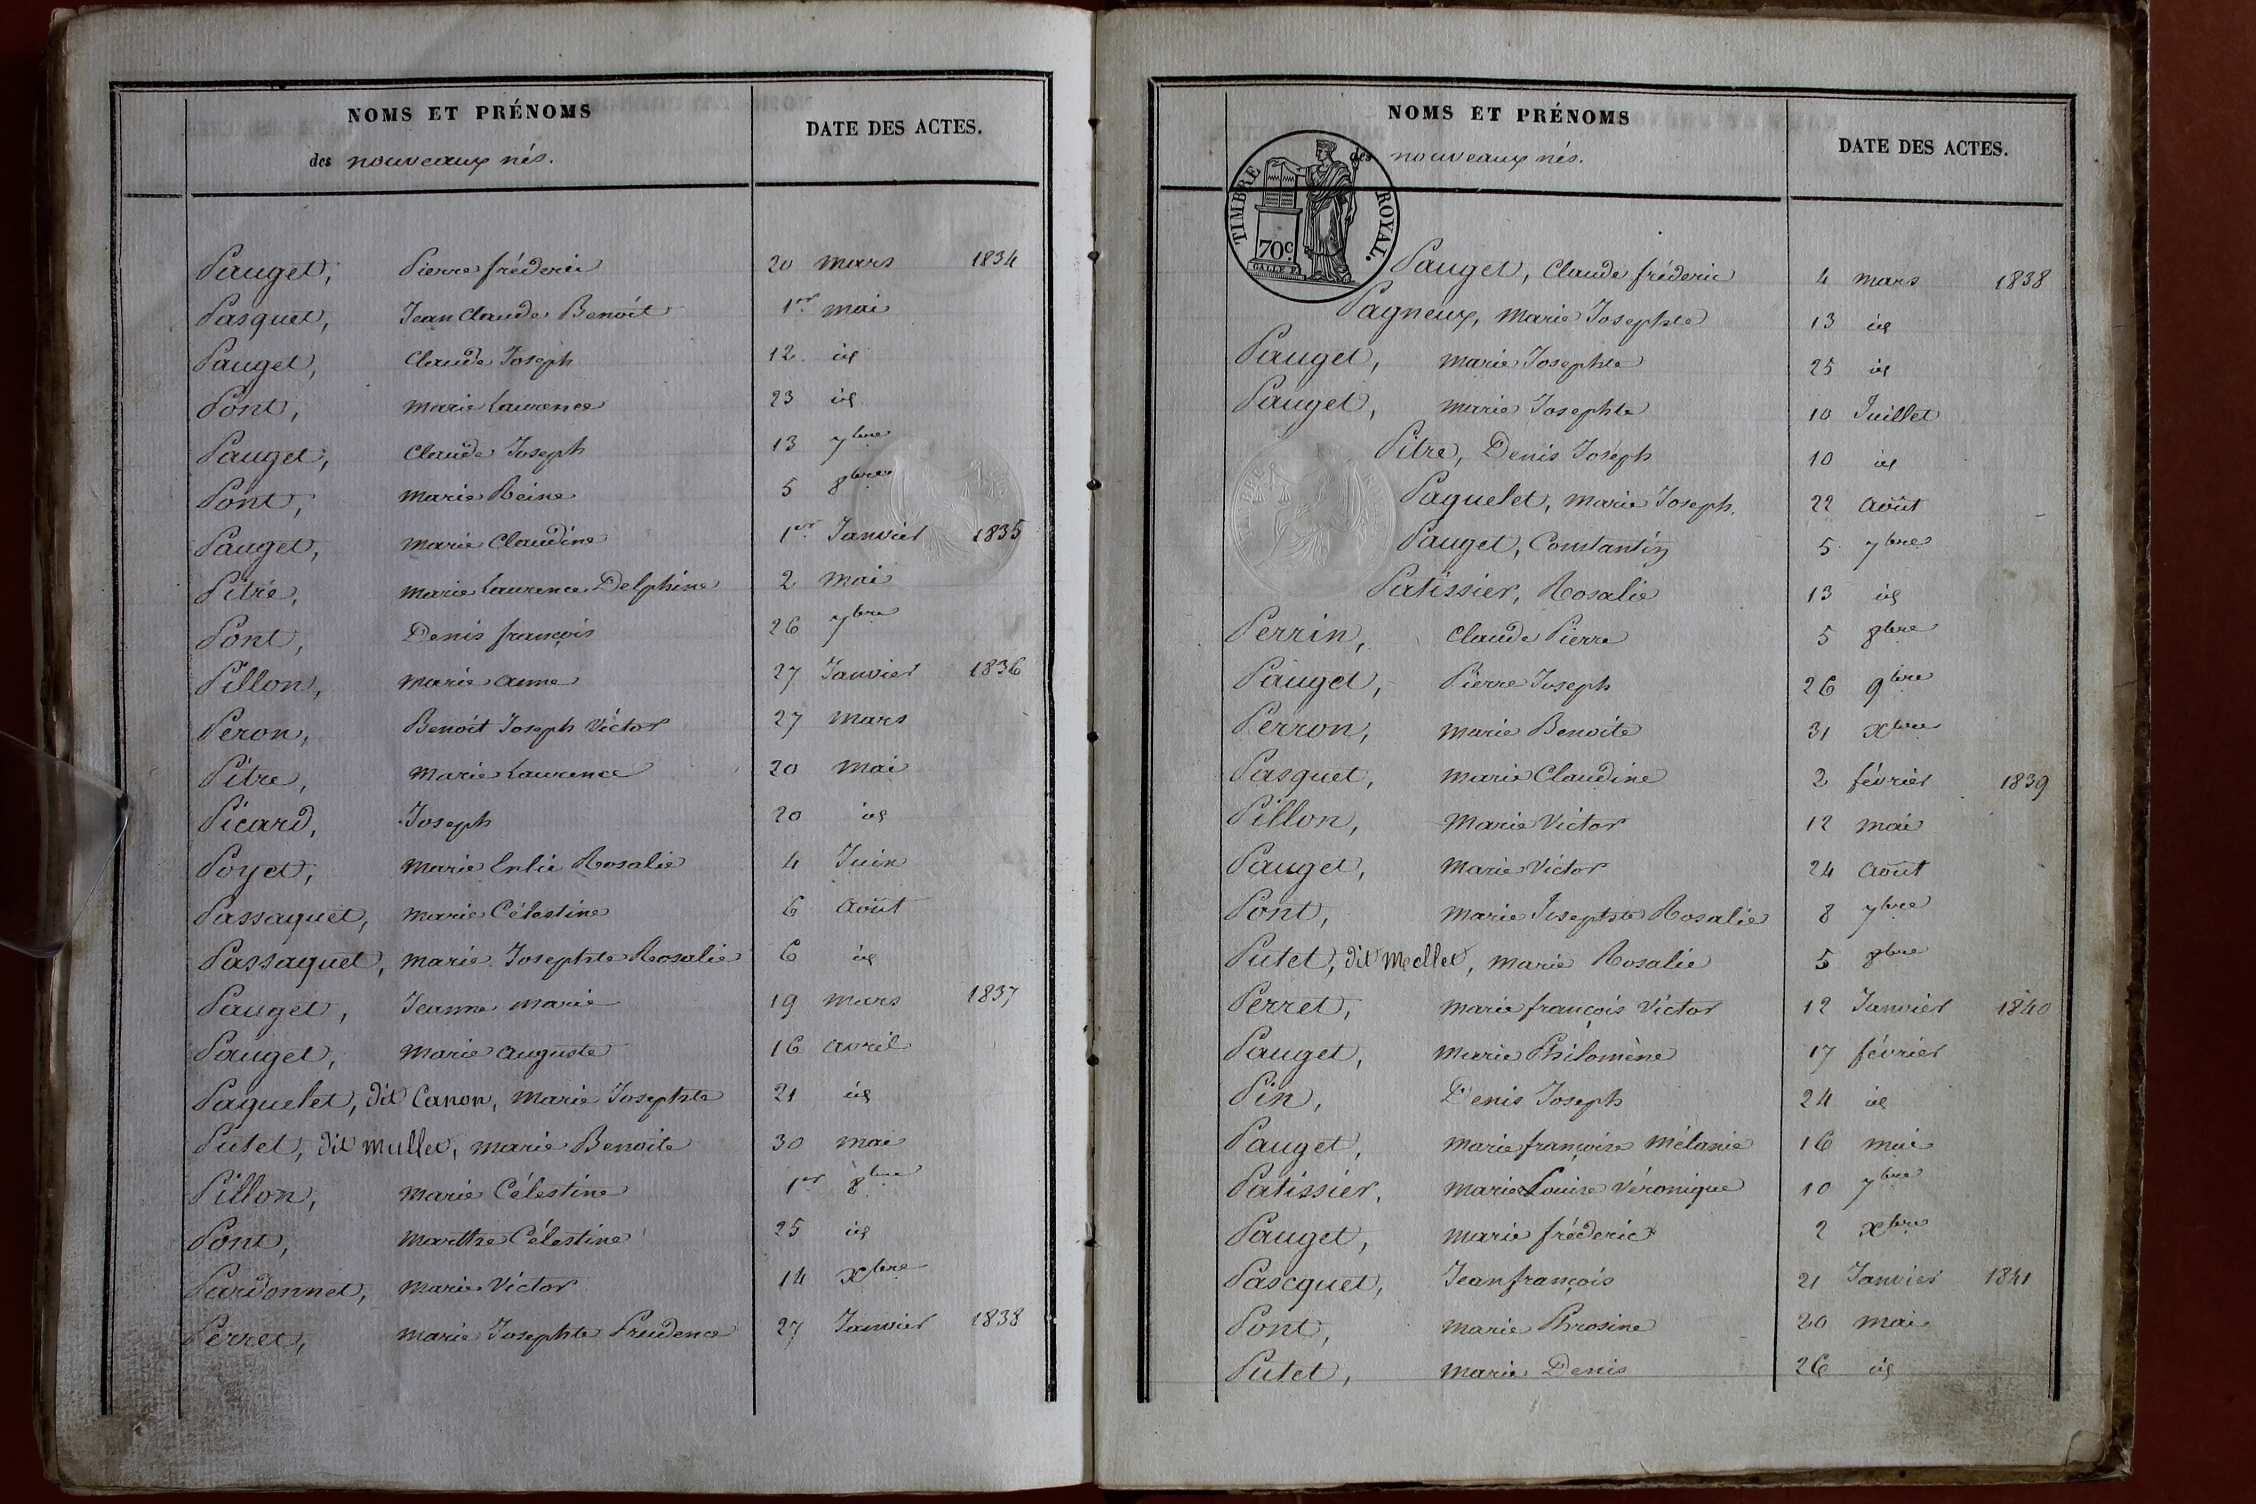 NOMS ET PRÉNOMS
des nouveaux nés.
DATE DES ACTES.
Pauget, Pierre fréderic 20 mars 1834
Pasquet, Jean Claude Benoît 1er mai
Pauget, Claude Joseph 12 id
Pont, marie laurence 23 id
Pauget, Claude Joseph 13 7bre
Pont, marie Reine 5 8bre
Pauget, marie Claudine 1er Janvier 1835
Pitre, marie laurence Delphine 2 mai
Pont, Denis françois 26 7bre
Pillon, marie anne 27 Janvier 1836
Peron, Benoît Joseph Victor 27 mars
Pitre, marie laurence 20 mai
Picard, Joseph 20 id
Poyet, marie Rosalie 4 Juin
Passaquet, marie Célestine 6 août
Passaquet, marie Josephte Rosalie 6 id
Pauget, Jeanne marie 19 mars 1837
Pauget, marie auguste 16 avril
Paguelet, dit Canon, marie Josephte 21 id
Putet, dit mullet, marie Benoite 30 mai
Pillon, marie Célestine 1er 8bre
Pont, marthe Célestine 25 id
Pardonnet, marie Victor 14 xbre
Perret, marie Josephte Prudence 27 Janvier 1838
NOMS ET PRÉNOMS
des nouveaux nés.
DATE DES ACTES.
TIMBRE ROYAL.
70c.
Pauget, Claude fréderic 4 mars 1838
Pagneux, marie Josephte 13 id
Pauget, marie Josephte 25 id
Pauget, marie Josephte 10 Juillet
Pitre, Denis Joseph 10 id
Paguelet, marie Joseph. 22 août
Pauget, Constantin 5 7bre
Patissier, Rosalie 13 id
Perrin, Claude Pierre 5 8bre
Pauget, Pierre Joseph 26 9bre
Perron, marie Benoite 31 xbre
Pasquet, marie Claudine 2 février 1839
Pillon, Marie Victor 12 mai
Pauget, Marie Victor 24 août
Pont, marie Josephte Rosalie 8 7bre
Putet, dit Mellet, marie Rosalie 5 8bre
Perret, marie françois Victor 12 Janvier 1840
Pauget, marie Philomène 17 février
Pin, Denis Joseph 24 id
Pauget, marie françoise mélanie 16 mai
Patissier, marie Louise Véronique 10 7bre
Pauget, marie fréderic 2 xbre
Pascquet, Jean françois 21 Janvier 1841
Pont, marie Phrosine 20 mai
Putet, marie Denis 26 id